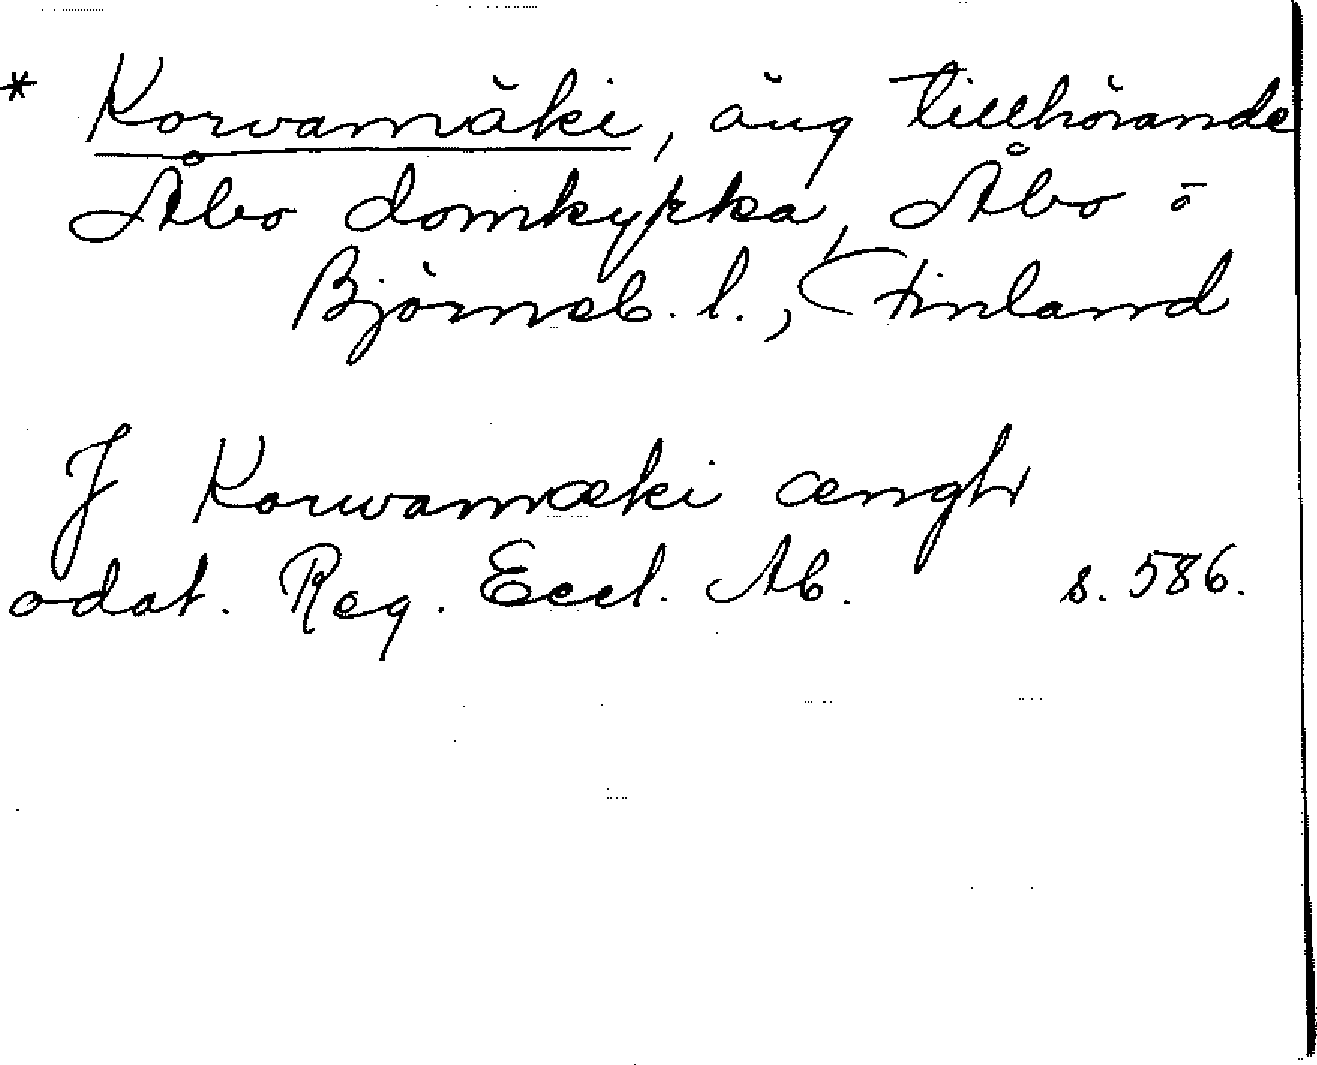 * Korvamäki, äng tillhörande
Åbo domkyrka, Åbo o
Björneb. l., Finland
J Korwamæki ængh
odat. Reg. Eccl. Ab. s. 586.